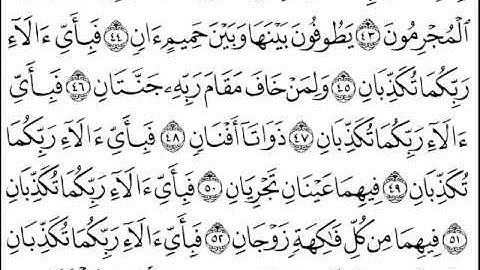 ٱلْمُجْرِمُونَ ٤٣ يَطُوفُونَ بَيْنَهَا وَبَيْنَ حَمِيمٍ ءَانٍ ٤٤ فَبِأَىِّ ءَالَآءِ
رَبِّكُمَا تُكَذِّبَانِ ٤٥ وَلِمَنْ خَافَ مَقَامَ رَبِّهِۦ جَنَّتَانِ ٤٦ فَبِأَىِّ
ءَالَآءِ رَبِّكُمَا تُكَذِّبَانِ ٤٧ ذَوَاتَآ أَفْنَانٍ ٤٨ فَبِأَىِّ ءَالَآءِ رَبِّكُمَا
تُكَذِّبَانِ ٤٩ فِيهِمَا عَيْنَانِ تَجْرِيَانِ ٥٠ فَبِأَىِّ ءَالَآءِ رَبِّكُمَا تُكَذِّبَانِ
٥١ فِيهِمَا مِن كُلِّ فَٰكِهَةٍ زَوْجَانِ ٥٢ فَبِأَىِّ ءَالَآءِ رَبِّكُمَا تُكَذِّبَانِ